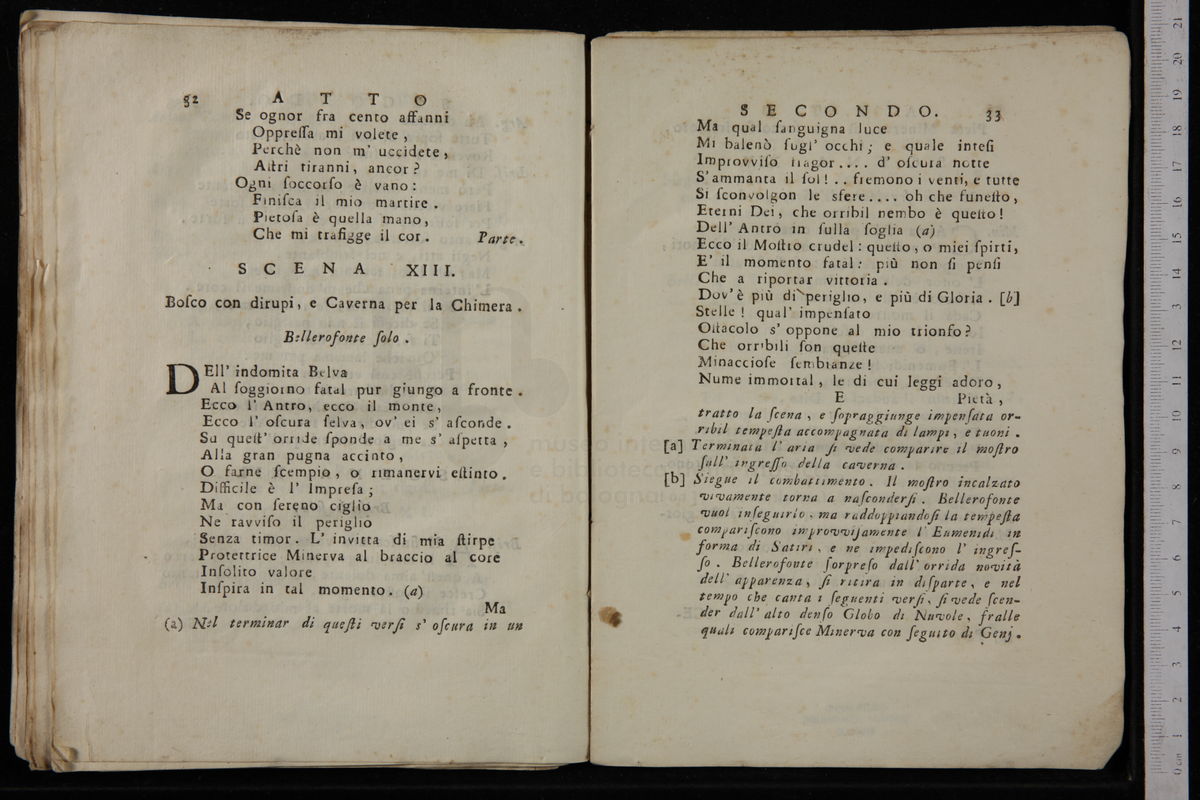 32 A T T O
Se ognor fra cento affanni
Oppreſſa mi volete,
Perchè non m' uccidete,
Aſtri tiranni, ancor?
Ogni ſoccorſo è vano:
Finiſca il mio martire.
Pietoſa è quella mano,
Che mi trafigge il cor. Parte.
S C E N A XIII.
Boſco con dirupi, e Caverna per la Chimera.
Bellerofonte ſolo.
DEll' indomita Belva
Al ſoggiorno fatal pur giungo a fronte.
Ecco l' Antro, ecco il monte,
Ecco l' oſcura ſelva, ov' ei s' aſconde.
Su queſt' orride ſponde a me s' aſpetta,
Alla gran pugna accinto,
O farne ſcempio, o rimanervi eſtinto.
Difficile è l' Impreſa;
Ma con ſereno ciglio
Ne ravviſo il periglio
Senza timor. L' invitta di mia ſtirpe
Protettrice Minerva al braccio al core
Inſolito valore
Inſpira in tal momento. (a)
Ma
(a) Nel terminar di queſti verſi s' oſcura in un
S E C O N D O. 33
Ma qual ſanguigna luce
Mi balenò ſugl' occhi; e quale inteſi
Improvviſo fragor.... d' oſcura notte
S' ammanta il ſol! .. fremono i venti, e tutte
Si ſconvolgon le sfere.... oh che funeſto,
Eterni Dei, che orribil nembo è queſto!
Dell' Antro in ſulla ſoglia (a)
Ecco il Moſtro crudel: queſto, o miei ſpirti,
E' il momento fatal: più non ſi penſi
Che a riportar vittoria.
Dov' è più di periglio, e più di Gloria. [b]
Stelle! qual' impenſato
Oſtacolo s' oppone al mio trionfo?
Che orribili ſon queſte
Minaccioſe ſembianze!
Nume immortal, le di cui leggi adoro,
E Pietà,
tratto la ſcena, e ſopraggiunge impenſata or-
ribil tempeſta accompagnata di lampi, e tuoni.
[a] Terminata l' aria ſi vede comparire il moſtro
ſull' ingreſſo della caverna.
[b] Siegue il combattimento. Il moſtro incalzato
vivamente torna a naſconderſi. Bellerofonte
vuol inſeguirlo, ma raddoppiandoſi la tempeſta
compariſcono improvviſamente l' Eumenidi in
forma di Satiri, e ne impediſcono l' ingreſ-
ſo. Bellerofonte ſorpreſo dall' orrida novità
dell' apparenza, ſi ritira in diſparte, e nel
tempo che canta i ſeguenti verſi, ſi vede ſcen-
der dall' alto denſo Globo di Nuvole, fralle
quali compariſce Minerva con ſeguito di Genj.